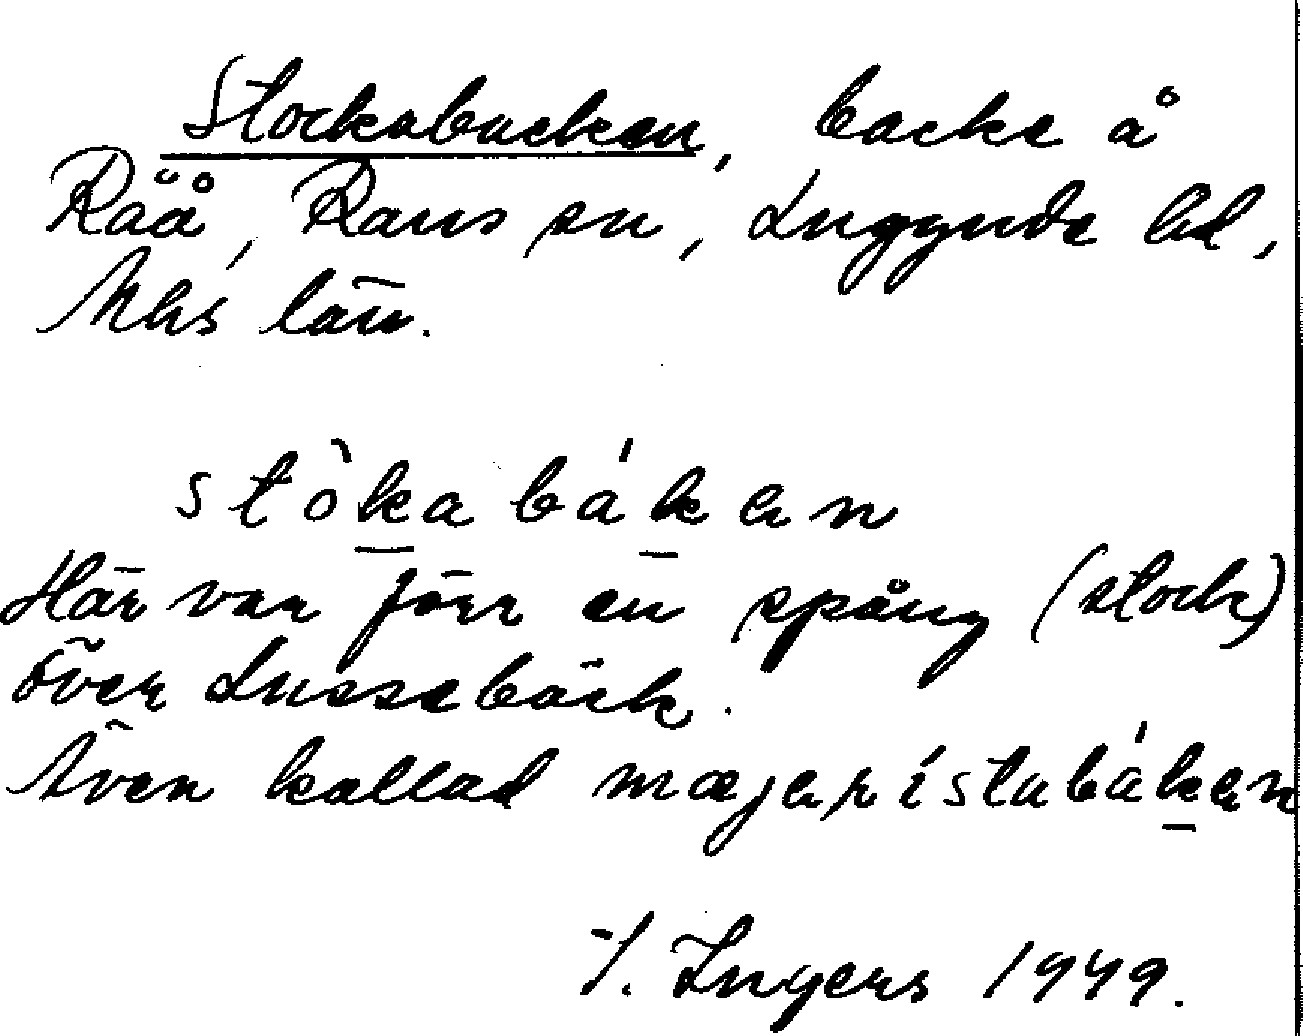 Stockabacken, backe å
Råå, Raus sn, Luggude hd,
Mhs län.
stòkabákən
Här var förr en spång (stock)
över Lussebäck.
Även kallad mæjərístubákən
I. Ingers 1949.